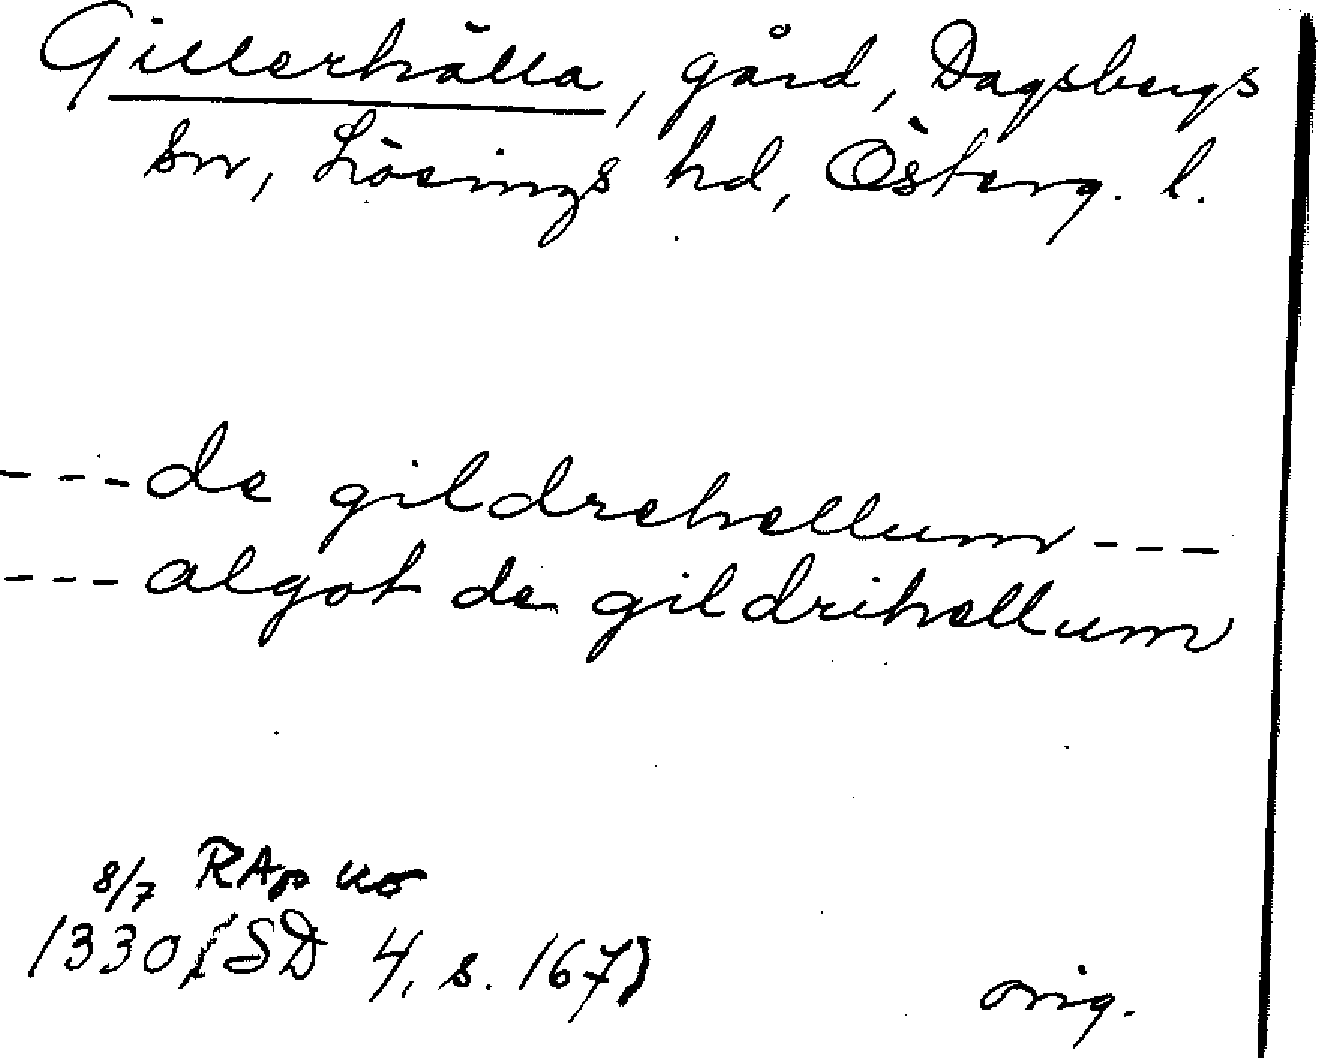 Gillerhälla, gård, Dagsbergs
sn, Lösings hd, Österg. l.
---de gildrehellum---
---algot de gildrihellum
8/7 RAp uo
1330 (SD 4, s. 167)
orig.